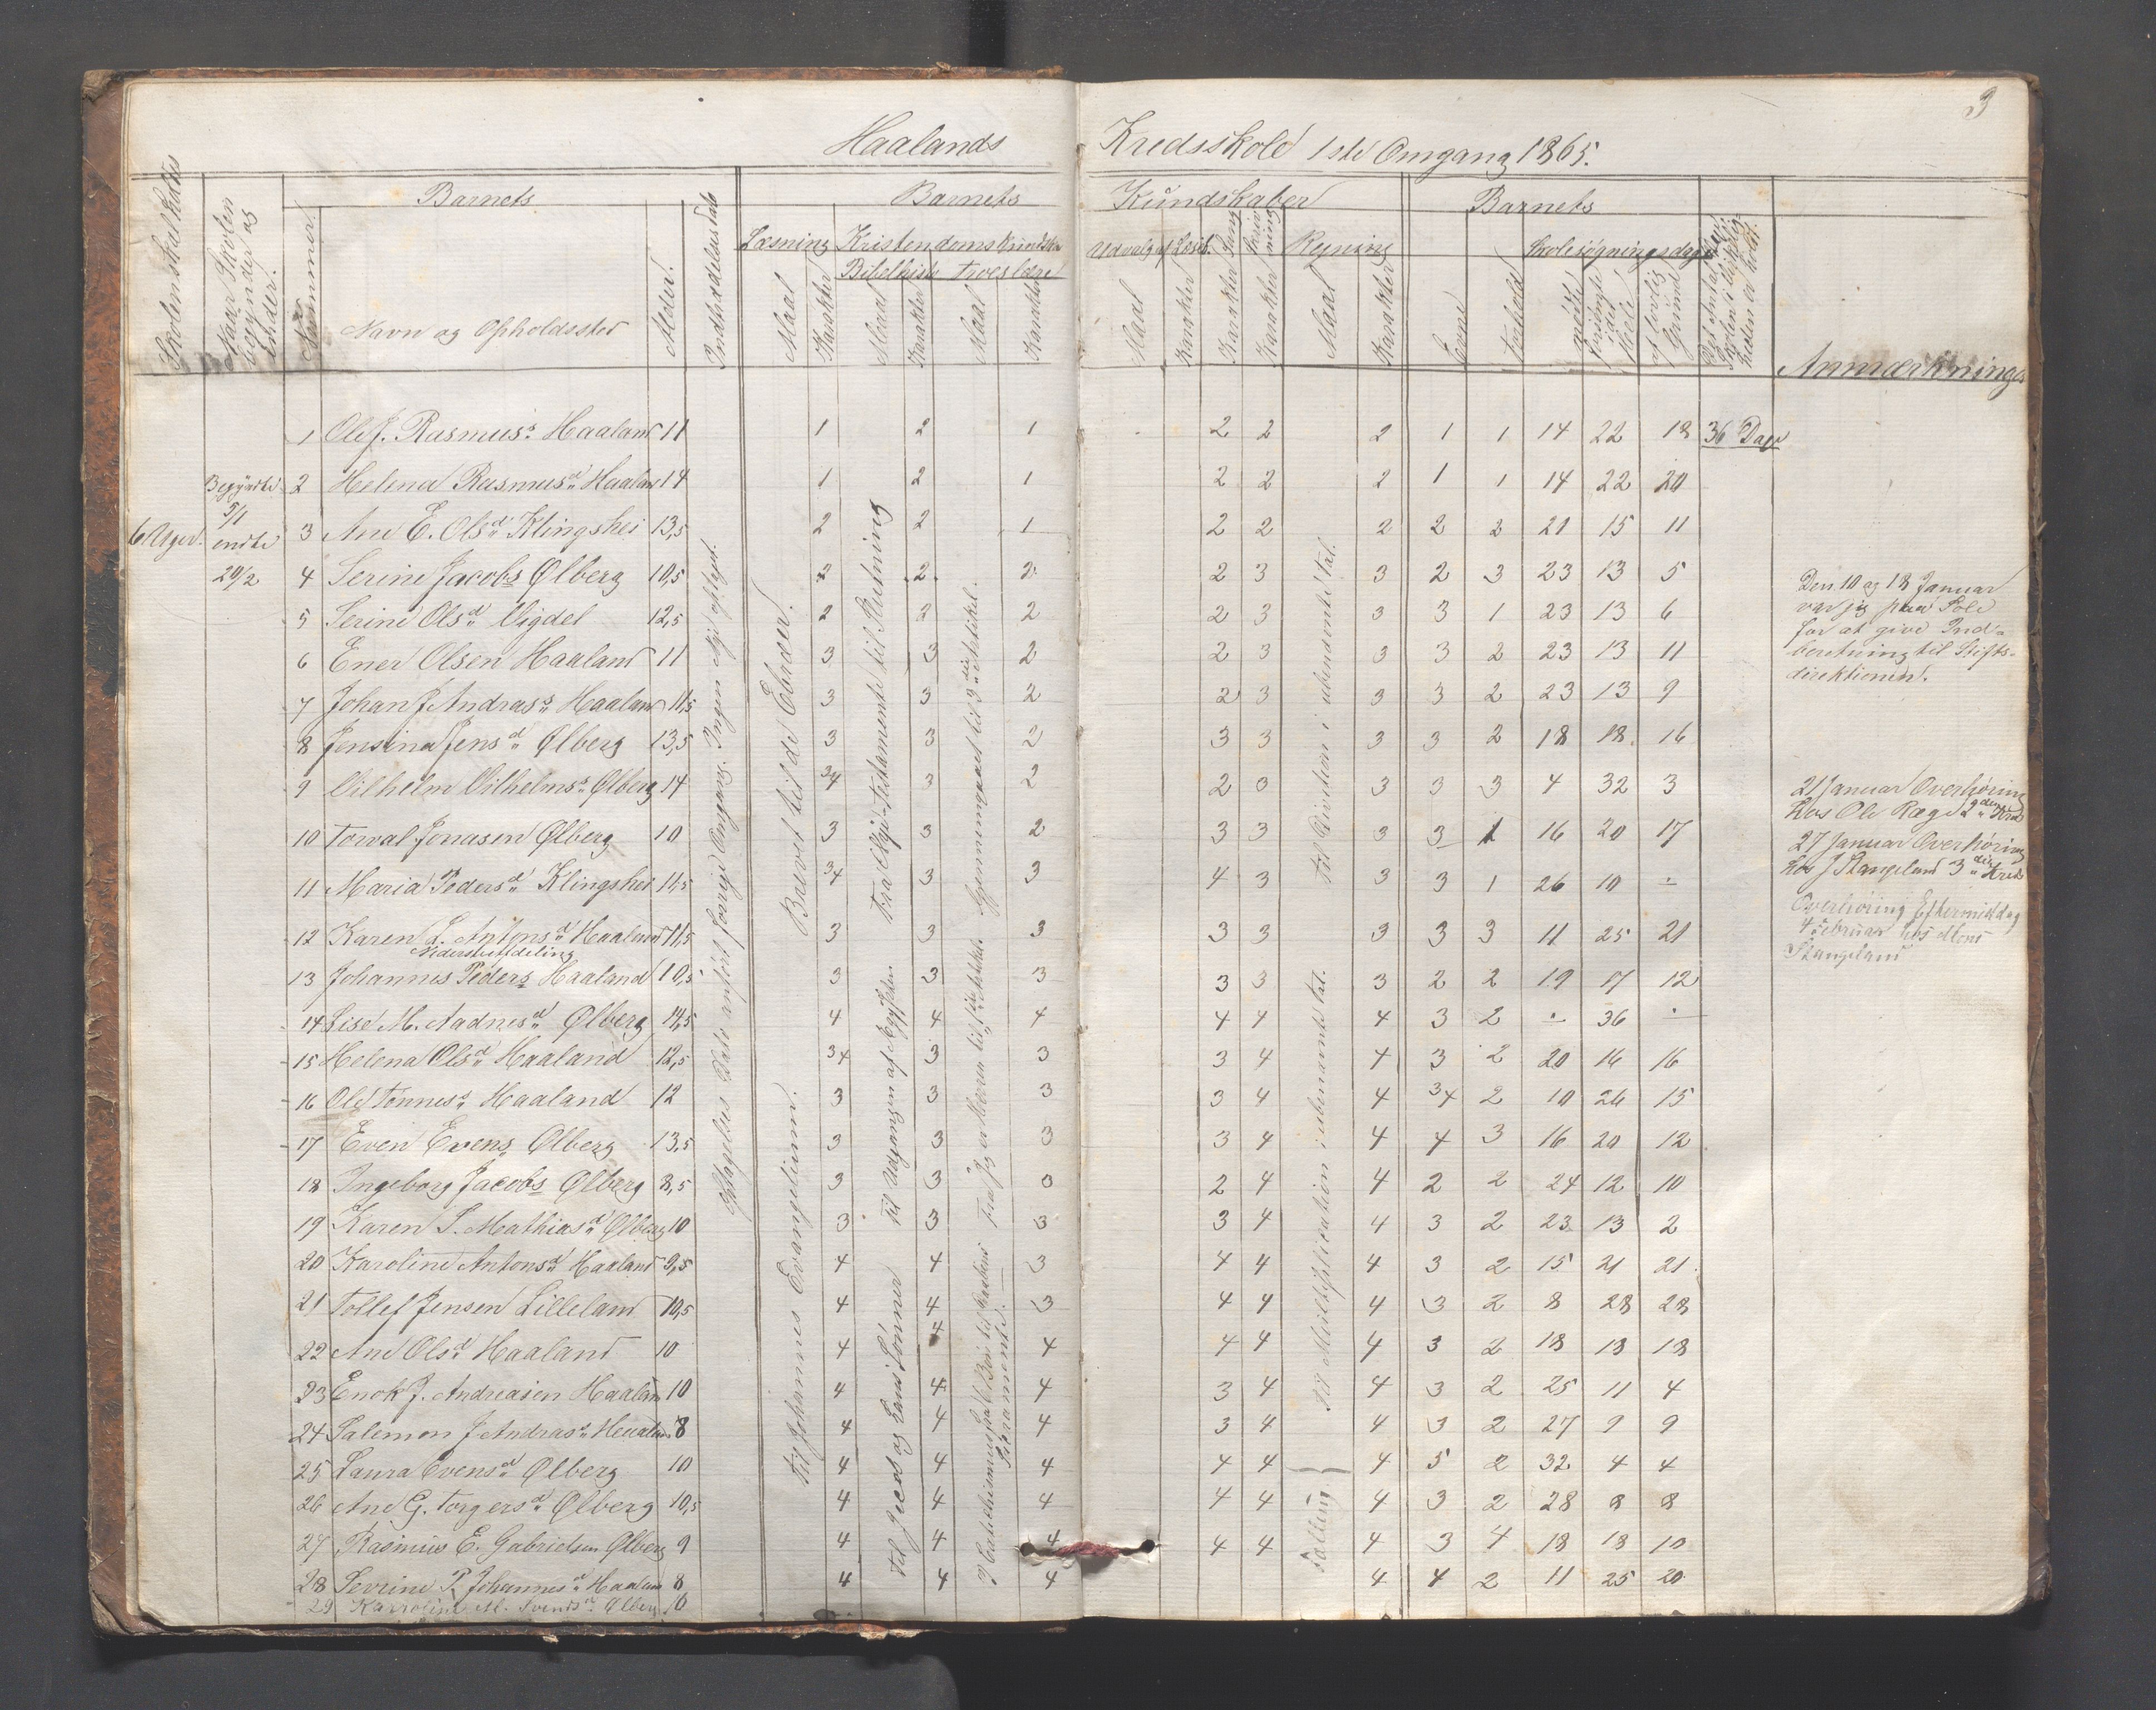 3
Haalands Kredsskole 1ste Omgang 1865.
Skolens
Naar Skolen begynder og ender.
Barnets
Nummer
Navn og Opholdssted
Alder.
Indtrædelsesdato
Barnets Kundskaber
Læsning
Maal
Karakter
Kristendoms Kundskab
Bibelhist.
Maal
Karakter
Troeslære
Maal
Karakter
Udvalg af Læseb.
Maal
Karakter
Sang
Karakter
Skrivning
Karakter
Regning
Maal
Karakter
Barnets
Evne
Forhold
Skolesøgningsdage
mødte
forsømte i det Hele
af lovlig Grund
Anmærkninger
1 Ole J. Rasmuss. Haaland 11 1 2 1 2 2 2 1 1 14 22 18 36 Dage
Begyndte 2 Helena Rasmusd. Haaland 14 1 2 1 2 2 2 1 1 14 22 20
5/1
6 Uger. endte 3 Ane E. Olsd. Klingshei 13,5 2 2 1 2 2 2 2 2 21 15 11
20/2 4 Serine Jacobs Ølberg 10,5 2 2 2 2 3 3 2 3 23 13 5
5 Serine Olsd. Vigdel 12,5 2 2 2 2 3 3 3 1 23 13 6
6 Ener Olsen Haaland 11 3 3 2 2 3 3 3 2 23 13 11
7 Johan J Andrass. Haaland 11,5 3 3 2 2 3 3 3 2 23 13 9
8 Jensina Jensd. Ølberg 13,5 3 3 2 3 3 3 3 2 18 18 16
9 Vilhelm Vilhelms. Ølberg 14 3/4 3 2 2 0 3 3 3 4 32 3
10 Torval Jonasen Ølberg 10 3 3 2 3 3 3 3 1 16 20 17
11 Maria Pedersd. Klingshei 11,5 3/4 3 3 4 3 3 3 1 26 10 -
12 Karen L. Antonsd. Haaland 11,5 3 3 3 3 3 3 3 3 11 25 21
Nederste Afdeling
13 Johannes Peders Haaland 10,5 3 3 3 3 3 3 2 2 19 17 12
14 Lise M. Aadnesd. Ølberg 14,5 4 4 4 4 4 4 3 2 - 36 -
15 Helena Olsd. Haaland 12,5 3/4 3 3 3 4 4 3 2 20 16 16
16 Ole Tønness. Haaland 12 3 3 3 3 4 4 3/4 2 10 26 15
17 Even Evens Ølberg 13,5 3 3 3 3 4 4 4 3 16 20 12
18 Ingeborg Jacobs Ølberg 8,5 3 3 0 2 4 4 2 2 24 12 10
19 Karen S. Mathiasd. Ølberg 10 3 3 3 3 4 4 3 2 23 13 2
20 Karoline Antonsd. Haaland 9,5 4 4 3 4 4 4 3 2 15 21 21
21 Tollef Jensen Lilleland 10,5 4 4 3 4 4 4 3 2 8 28 28
22 Ane Olsd. Haaland 10 4 4 4 4 4 4 3 2 18 18 18
23 Enok J. Andreasen Haaland 10 4 4 4 3 4 4 3 2 25 11 4
24 Salemon J Andrass. Haaland 8 4 4 4 3 4 4 3 2 27 9 9
25 Laura Evensd. Ølberg 10 4 4 4 4 4 4 5 2 32 4 4
26 Ane G. Torgersd. Ølberg 10,5 4 4 4 4 4 4 3 2 28 8 8
27 Rasmus E. Gabrielsen Ølberg 9 4 4 4 4 4 4 3 4 18 18 10
28 Sevrine P. Johannesd. Haaland 8 4 4 4 4 4 2 11 25 20
29 Karroline M. Svendsd. Ølberg 10
forrige Omgang. Ingen Nye optaget.
til Johannes Evangelium.
til de Ebræer.
til Jacob og hans Sønner
til Udgangen af Ægypten
Fra Nye-Testamente til Slutning
Sakramente.
til 3die Artikel.
Til Division i ubenævnte Tal.
Til Multiplikation i ubenævnte Tal.
Tælling
Den 10 og 18 Januar
var jeg paa Sole
for at give Ind-
beretning til Stifts-
direktionen.
21 Januar Overhøring
hos Ole Ræge 2den Kreds
27 Januar Overhøring
hos J Stangeland 3die Kreds
Overhøring Eftermiddag
4 Februar hos
Stangeland